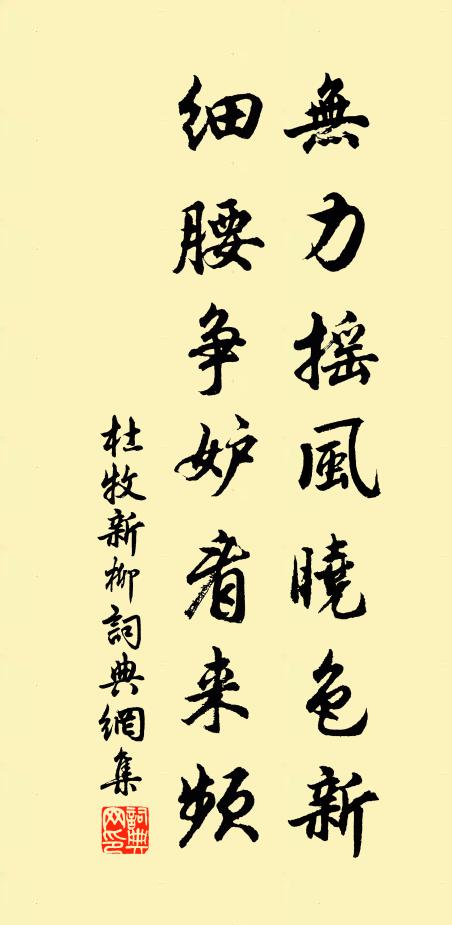 無力摇風曉色新
细腰争妒看来频
杜牧新柳詞典網集
詞典网印